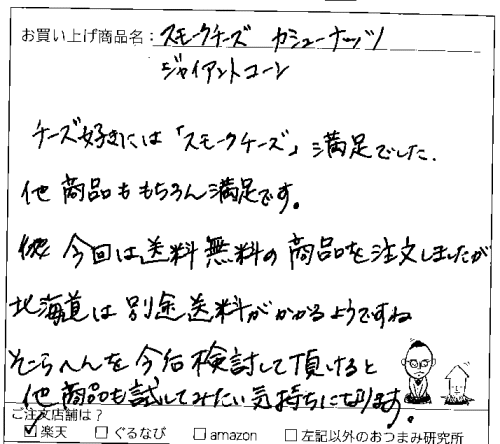 お買い上げ商品名：スモークチーズ カシューナッツ
ジャイアントコーン
チーズ好きには「スモークチーズ」満足でした.
他商品ももちろん満足です。
今回は送料無料の商品を注文しましたが
北海道は別途送料がかかるようですね
そこらへんを今后検討して頂けると
他商品も試してみたい気持ちになります。
ご注文店舗は？
楽天 ぐるなび amazon 左記以外のおつまみ研究所